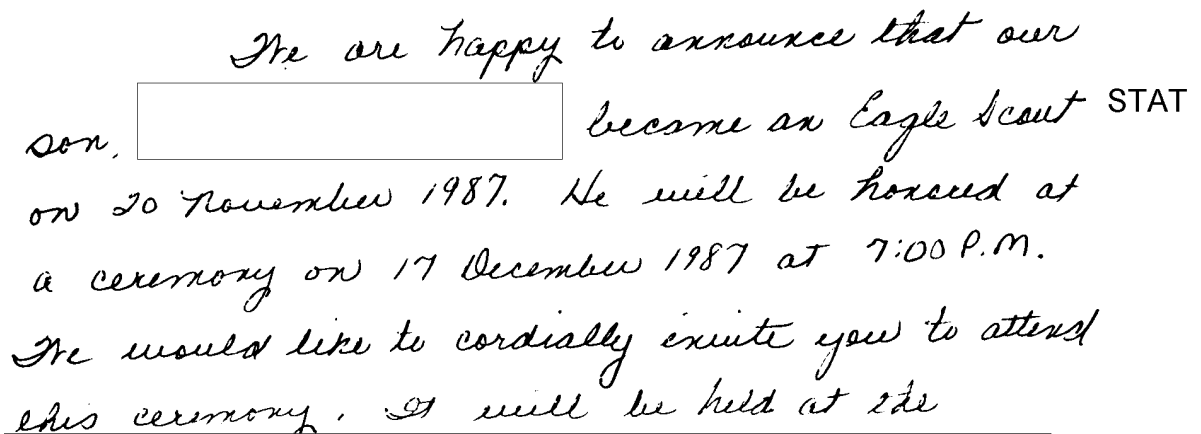 We are happy to announce that our
son, became an Eagle Scout STAT
on 20 November 1987. He will be honored at
a ceremony on 17 December 1987 at 7:00 P.M.
We would like to cordially invite you to attend
this ceremony. It will be held at the